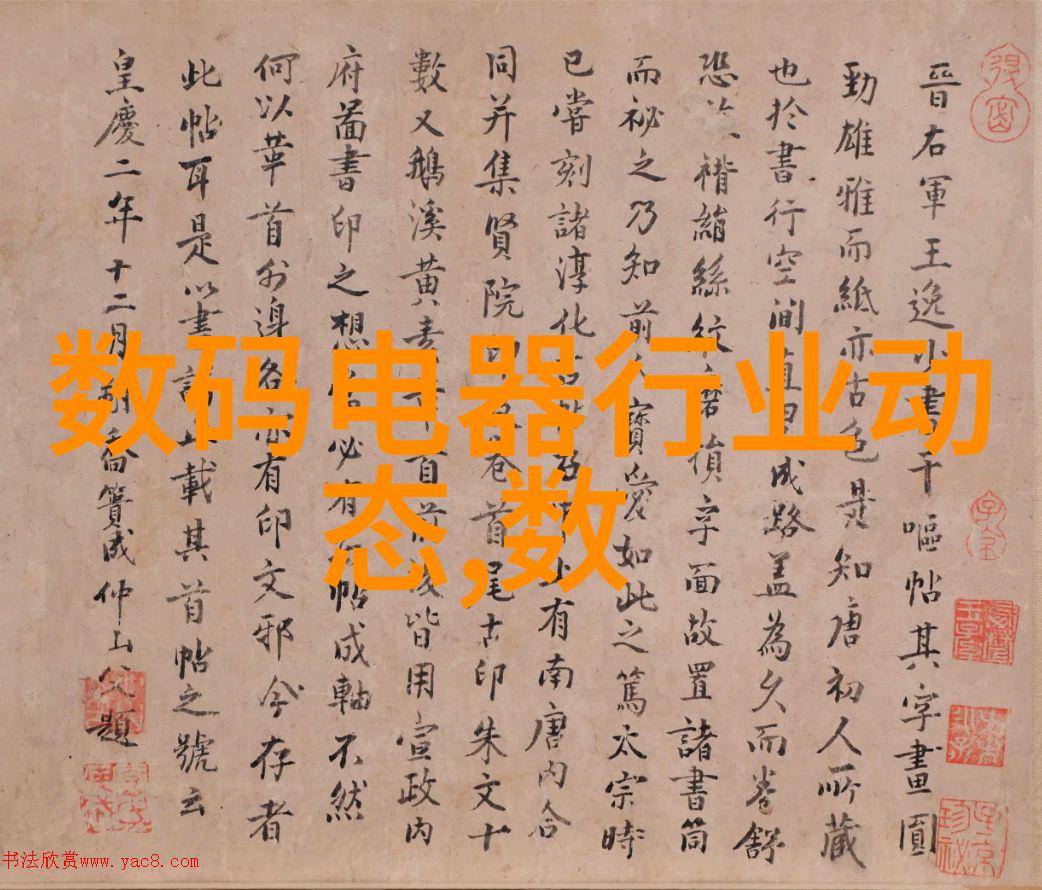 晉右軍王逸少書干嘔帖其字畫圓
勁雄雅而紙亦古色是知唐初人所藏
也於書行空間直成路蓋為久而卷舒
恐褙絹絲紋磨損字面故置諸書筒
而祕之乃知前寶愛如此之篤太宗時
已嘗刻諸淳化上有南唐內合
同并集賢院首尾古印朱文十
數又鵝溪黃首皆用宣政內
府圖書印之想必有帖成軸不然
何以華首外邊名亦有印文邪今存者
此帖耳是以書載其首帖之號云
皇慶二年十二月喬簣成仲山父題
数码电器行业动
态,数
书法欣赏www.yac8.com